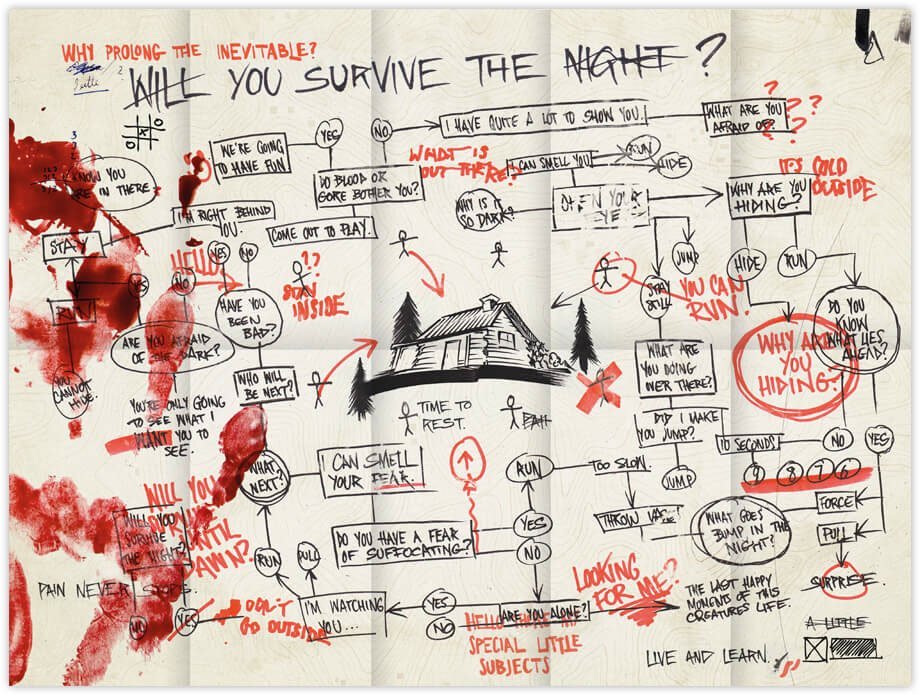 WHY PROLONG THE INEVITABLE?
WILL YOU SURVIVE THE NIGHT?
I KNOW YOU
ARE IN THERE
WE'RE GOING
TO HAVE FUN
YES
NO
I HAVE QUITE A LOT TO SHOW YOU.
WHAT ARE YOU
AFRAID OF?
? ? ?
DO BLOOD OR
GORE BOTHER YOU?
WHAT IS
OUT THERE?
I CAN SMELL YOU
RUN
HIDE
IT'S COLD
OUTSIDE
I'M RIGHT BEHIND
YOU.
COME OUT TO PLAY.
WHY IS IT
SO DARK?
OPEN YOUR
EYE
WHY ARE YOU
HIDING?
STAY
HELLO
YES
NO
??
STAY
INSIDE
JUMP
STAY
STILL
YOU CAN
RUN.
HIDE
RUN
RUN
YES
NO
HAVE YOU
BEEN
BAD?
DO YOU
KNOW
WHAT LIES
AHEAD?
ARE YOU AFRAID
OF THE DARK?
WHY ARE
YOU
HIDING?
WHAT ARE
YOU DOING
OVER THERE?
YOU
CANNOT
HIDE.
WHO WILL
BE NEXT?
YOU'RE ONLY GOING
TO SEE WHAT I
WANT YOU TO
SEE.
TIME TO
REST.
BAH
DID I MAKE
YOU JUMP?
10 SECONDS
NO
YES
WHAT
NEXT?
I CAN SMELL
YOUR FEAR.
RUN
TOO SLOW.
JUMP
9 8 7 6
WILL YOU
UNTIL
DAWN?
WILL YOU
SURVIVE
THE NIGHT?
THROW VASE
WHAT GOES
BUMP IN THE
NIGHT?
FORCE
PULL
DO YOU HAVE A FEAR
OF SUFFOCATING?
YES
NO
RUN
PULL
PAIN NEVER STOPS.
LOOKING
FOR ME?
SURPRISE.
THE LAST HAPPY
MOMENTS OF THIS
CREATURES LIFE.
NO
YES
DON'T
GO OUTSIDE
I'M WATCHING
YOU...
YES
NO
ARE YOU ALONE?
HELLO
SPECIAL LITTLE
SUBJECTS
A LITTLE
LIVE AND LEARN.